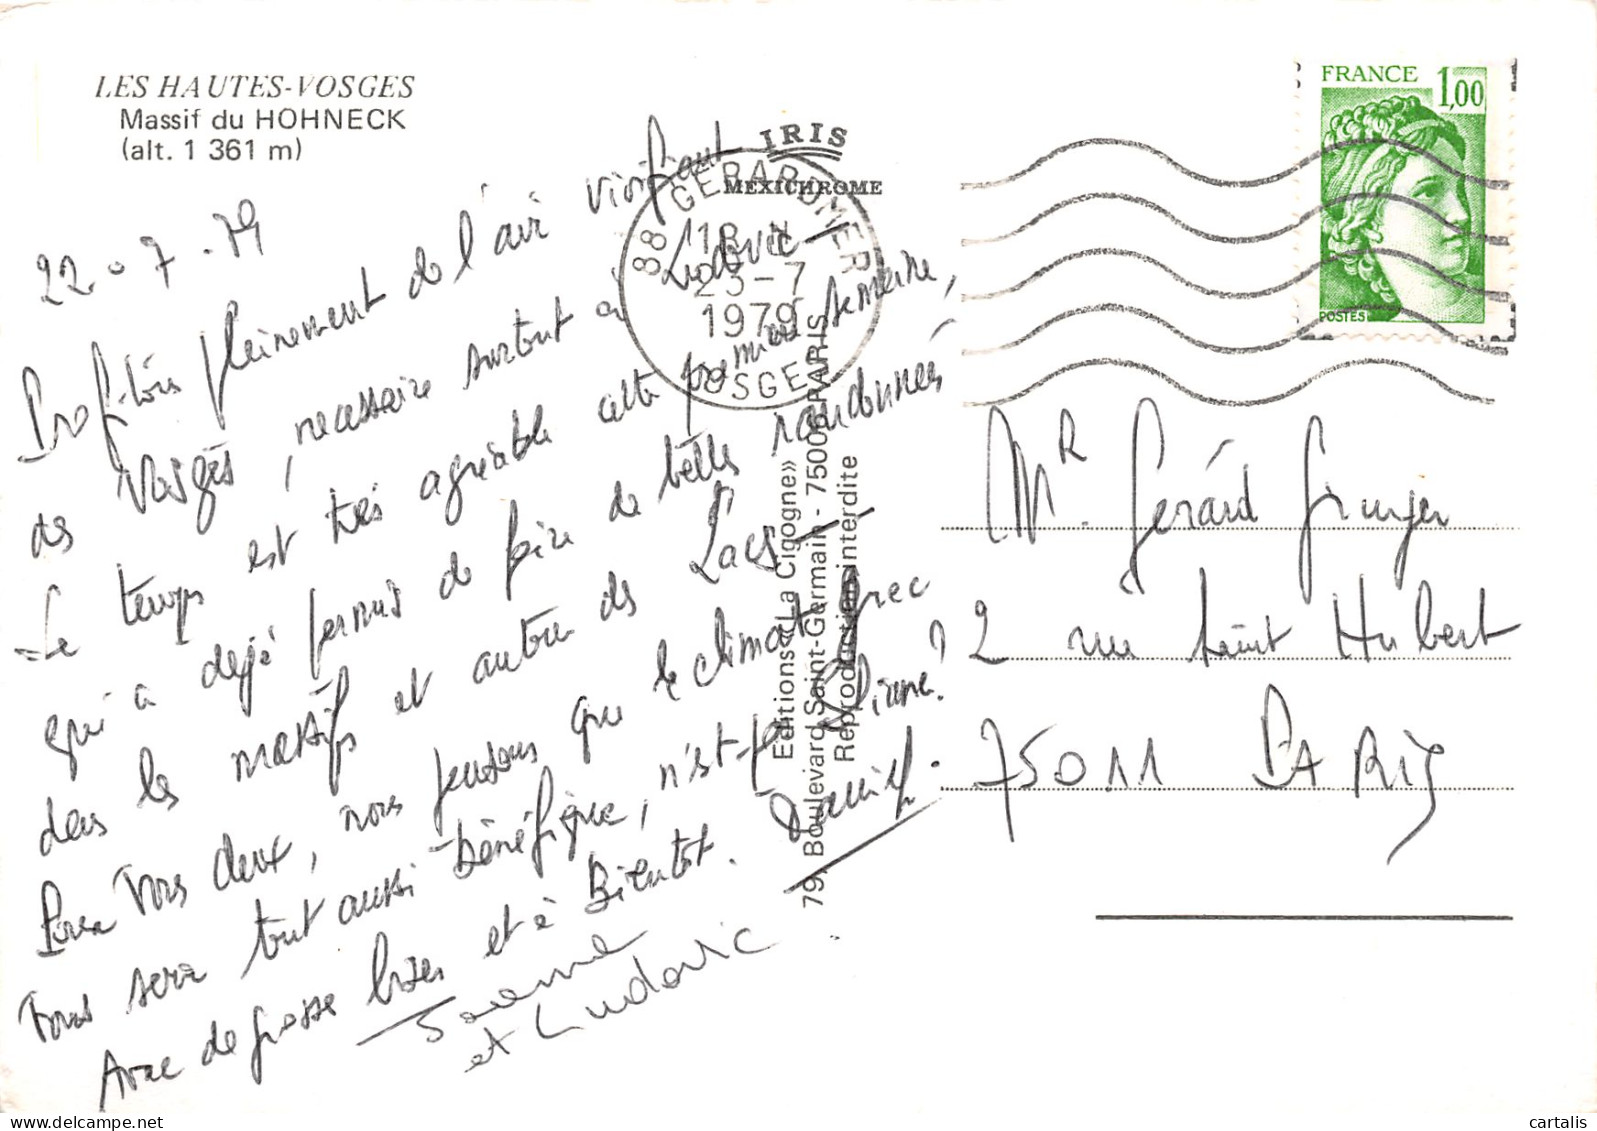 LES HAUTES-VOSGES
Massif du HOHNECK
(alt. 1 361 m)
22.7.79
Profitons pleinement de l'air vivifiant
des Vosges, nécessaire surtout à Ludovic
Le temps est très agréable cette première semaine,
qui a déjà permis de faire de belles randonnées
dans les massifs et autour des Lacs
Pour vous deux, nous pensons que le climat grec
vous sera tout aussi bénéfique, n'est-ce pas Diane?
Avec de grosses bises et à Bientôt. Daniel.
et Ludovic
IRIS
MEXICHROME
88 GERARDMER
18 H
23-7
1979
VOSGES
Editions «La Cigogne»
79, Boulevard Saint-Germain - 75006 PARIS
Reproduction interdite
FRANCE 1,00
POSTES
Mr. Gérard
2 rue Saint Hubert
75011 PARIS
cartalis